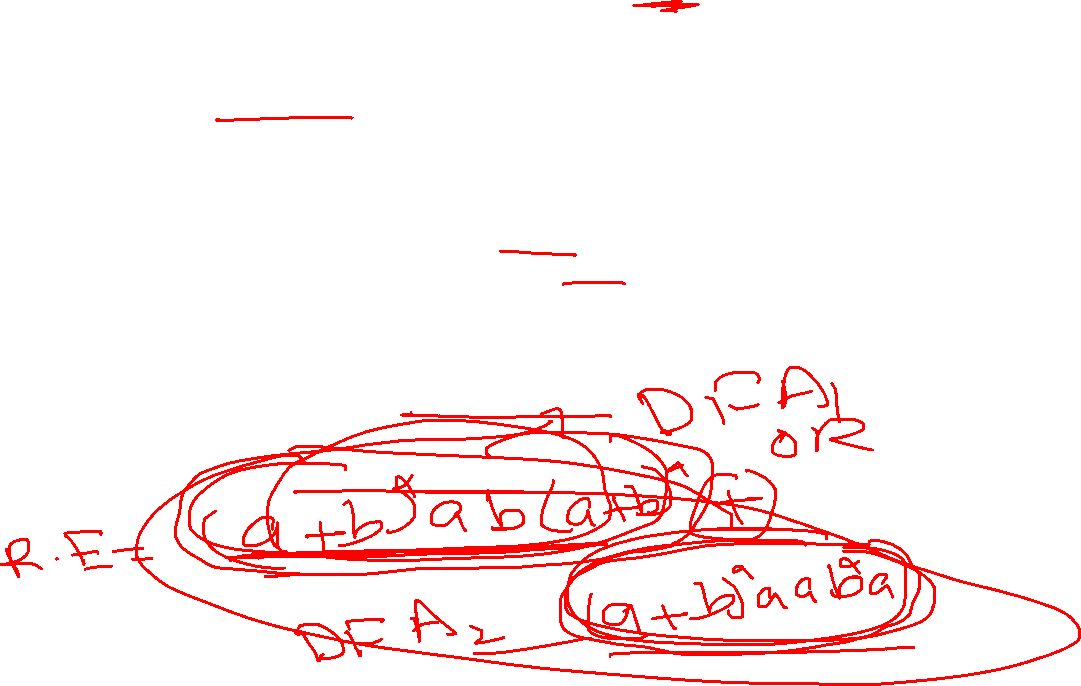 DFA1
OR
R.E - (a+b)* ab(a+b)* +
(a+b)* aab*a
DFA2